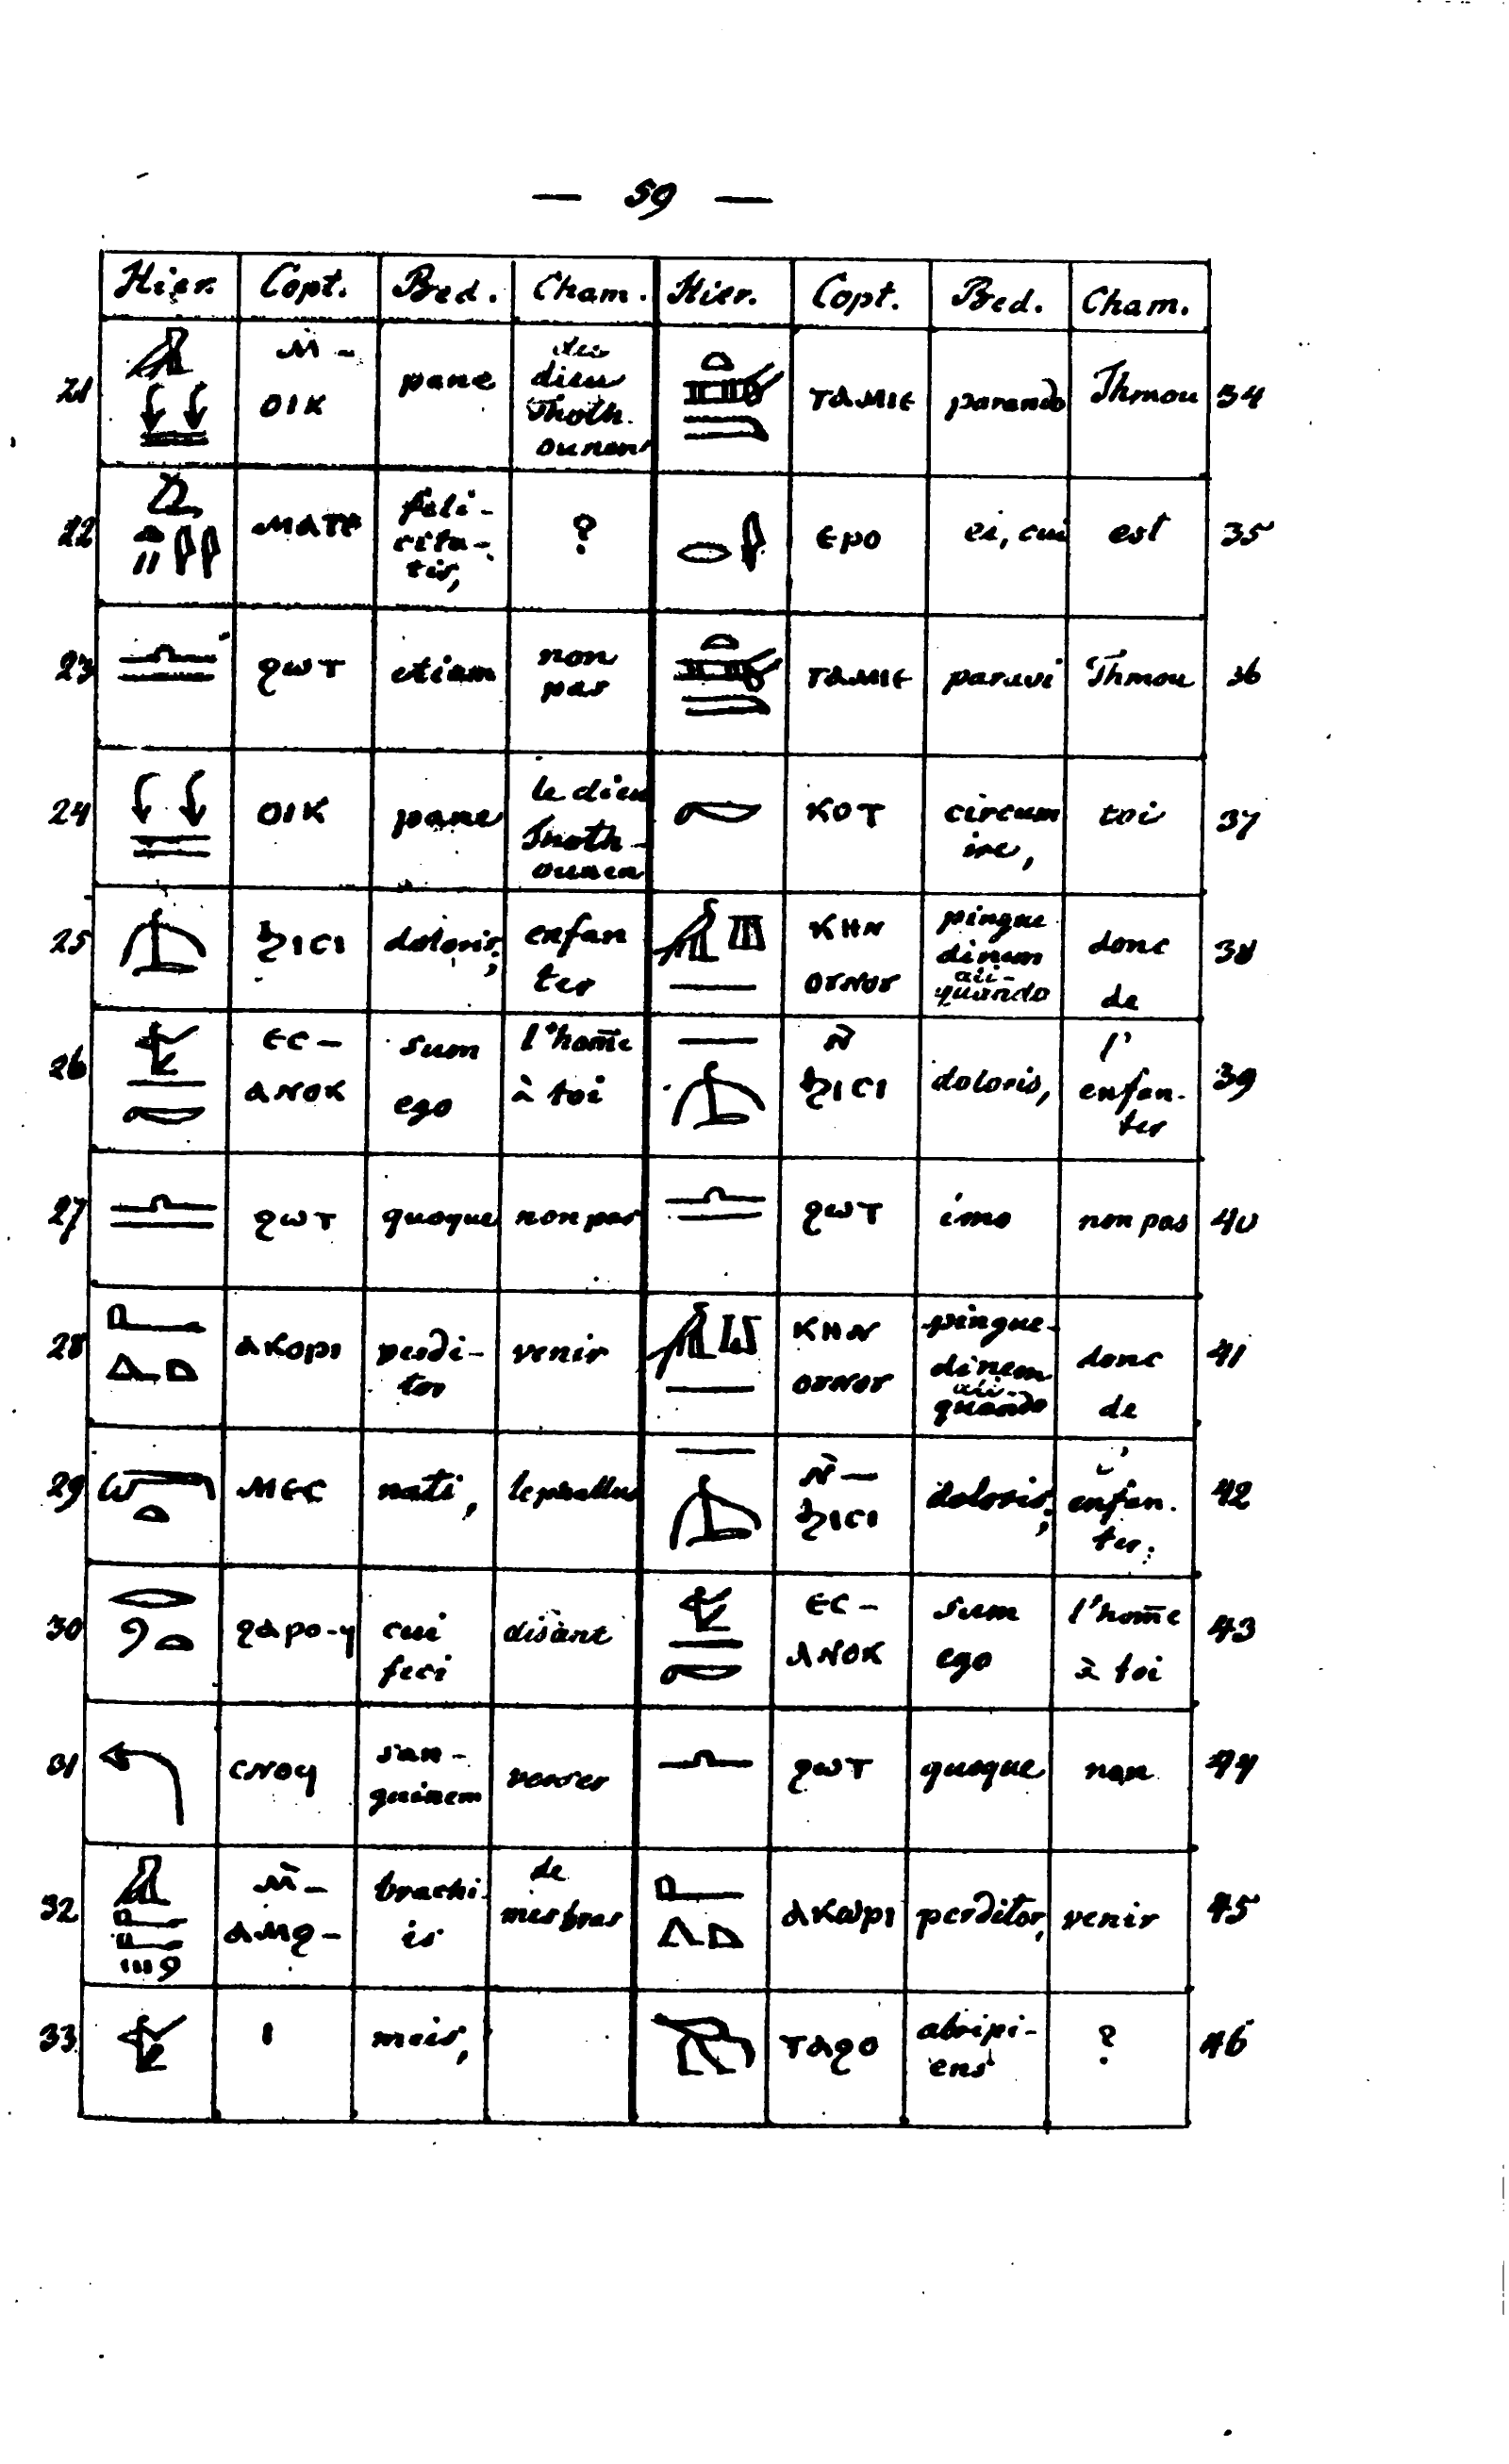 — 59 —
Hier. Copt. Bed. Cham. Hier. Copt. Bed. Cham.
21 ⲙ̄- ⲟⲓⲕ pane du dieu Thoth. ounen ⲧⲁⲙⲓⲉ parando Thmou 34
22 ⲙⲁⲧⲏ felicita-tis, ? ⲉⲣⲟ ei, cui est 35
23 ϩⲱⲧ etiam non pas ⲧⲁⲙⲓⲉ paravi Thmou 36
24 ⲟⲓⲕ pane le dieu Thoth-ounen ⲕⲟⲧ circum ire, toi 37
25 ϧⲓⲥⲓ doloris; enfan ter ⲕⲏⲛ ⲟⲩⲛⲟⲩ pingue dinem ali-quando donc de 38
26 ⲉⲥ- ⲁⲛⲟⲕ sum ego l'hom̄e à toi ⲛ̄ ϧⲓⲥⲓ doloris, l' enfan-ter 39
27 ϩⲱⲧ quoque non pas ϩⲱⲧ imo non pas 40
28 ⲁⲕⲟⲣⲓ perdi-tor venir ⲕⲏⲛ ⲟⲩⲛⲟⲩ pingue-dinem ali-quando donc de 41
29 ⲙⲉⲥ nati, le phallus ⲛ̄- ϧⲓⲥⲓ doloris; l' enfan-ter. 42
30 ϩⲁⲣⲟ-ϥ cui feci disant ⲉⲥ- ⲁⲛⲟⲕ sum ego l'hom̄e à toi 43
31 ⲥⲛⲟϥ san-guinem verser ϩⲱⲧ quoque non 44
32 ⲙ̄- ⲁⲙϩ- brachi-is de mes bras ⲁⲕⲱⲣⲓ perditor, venir 45
33 ⲓ meis, ⲧⲁϩⲟ abripi-ens ? 46